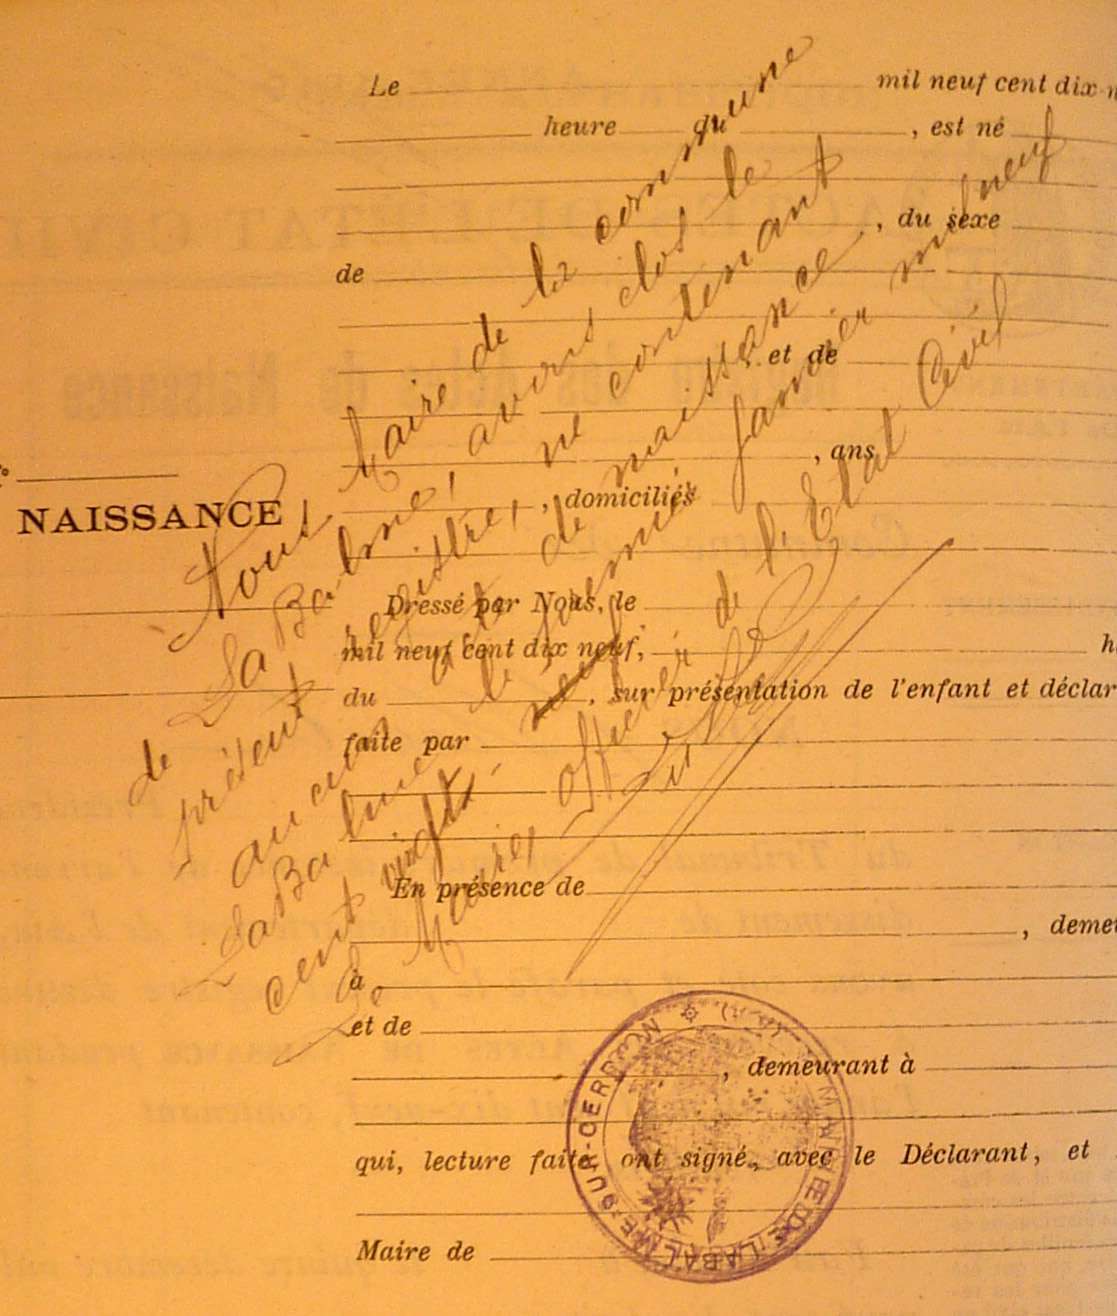 Le mil neuf cent dix-n
heure du , est né
, du sexe
de
, et de
, ans
, domiciliés
N°
NAISSANCE
Dressé par Nous, le
mil neuf cent dix neuf, h
du , sur présentation de l'enfant et déclar
faite par
En présence de
, demeu
à
et de
, demeurant à
qui, lecture faite, ont signé, avec le Déclarant, et
Maire de
Nous, Maire de la commune
de La Balme, avons clos le
présent registre, ne contenant
aucun acte de naissance
La Balme le premier janvier mil neuf
cent vingt.
Le Maire, officier de l'Etat Civil
MAIRIE DE LABALME-SUR-CERDON (AIN)